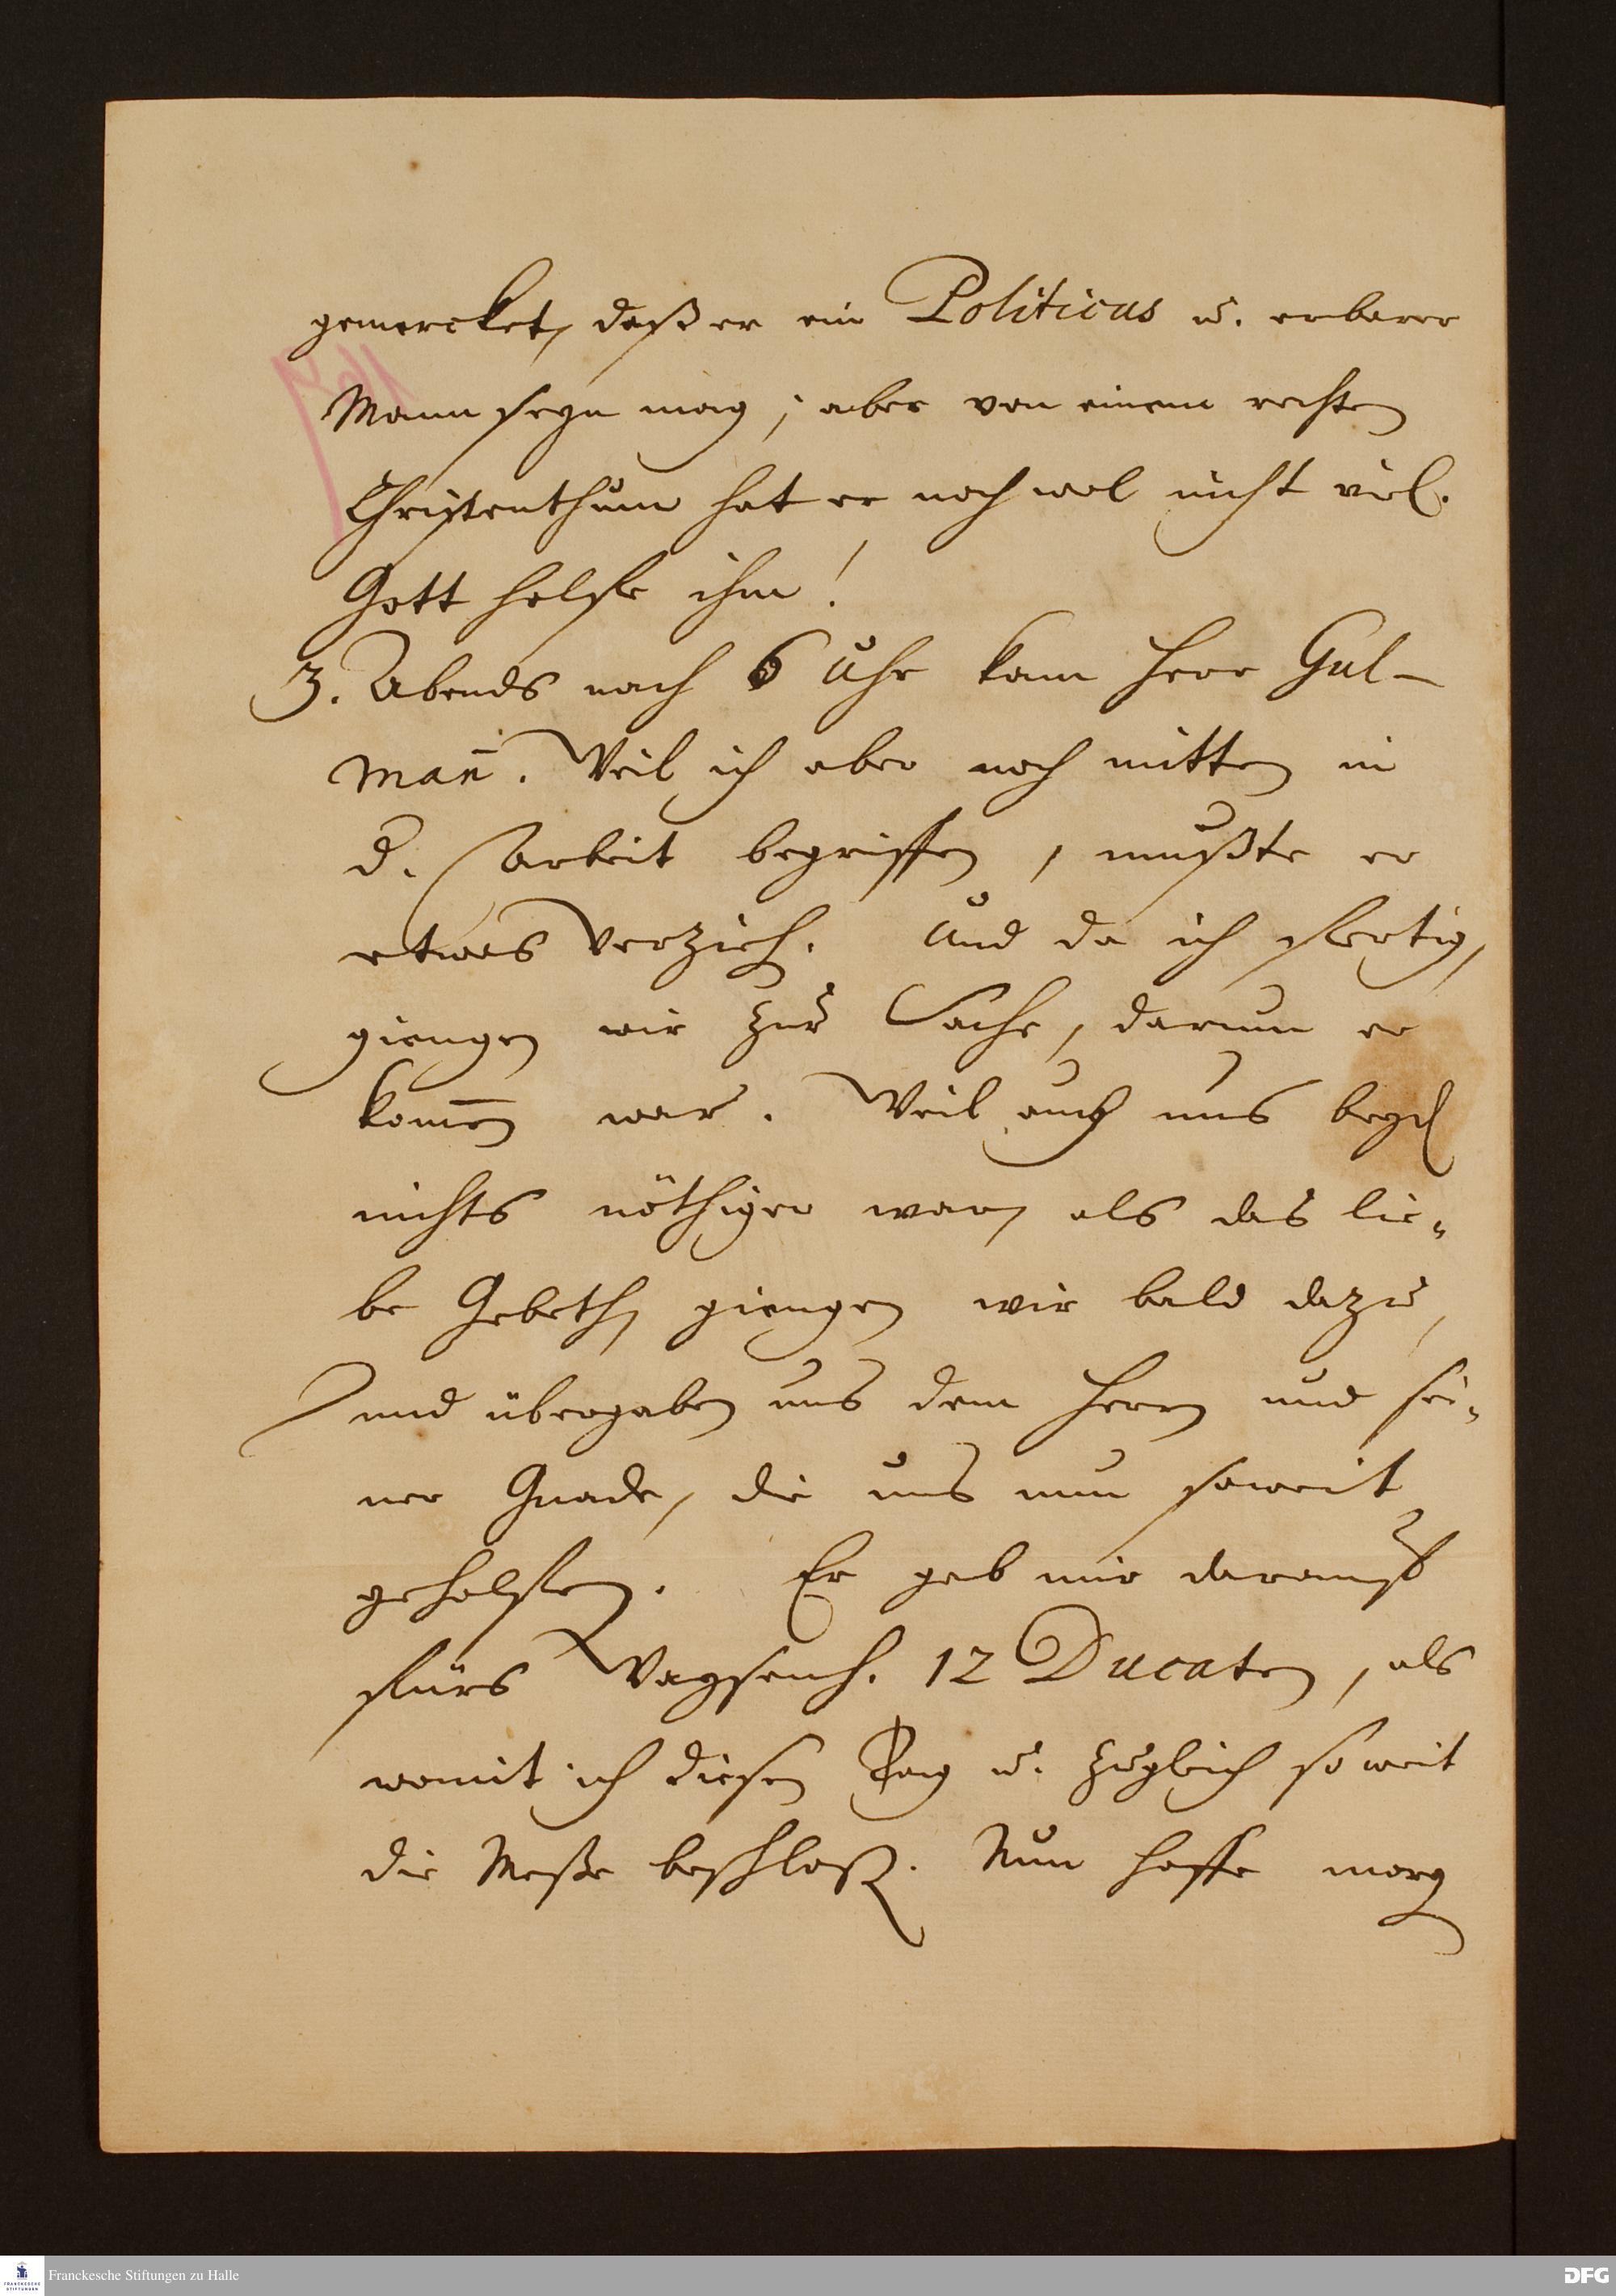 gemercket, daß er ein Politicus u. erbarer
Mann seyn mag; aber von einem rechten
Christenthum hat er noch wol nicht viel.
Gott helffe ihm!
3. Abends nach 6 Uhr kam Herr Gul-
man̄. Weil ich aber noch mitten in
d. Arbeit begriffen, mußte er
etwas verzieh. Und da ich fertig,
giengen wir zur Sache, darum er
kom̄en war. Weil auch uns beyd
nichts nöthiger war, als das lie-
be Gebeth, giengen wir bald dazu,
und übergaben uns dem Herrn und sei-
ner Gnade, die uns nun soweit
geholffen. Er gab mir darauf
fürs Waysenh. 12 Ducaten, als
womit ich diesen Tag u. zugleich so weit
die Meße beschloß. Nun hoffe morg
Franckesche Stiftungen zu Halle
FRANCKESCHE STIFTUNGEN
DFG